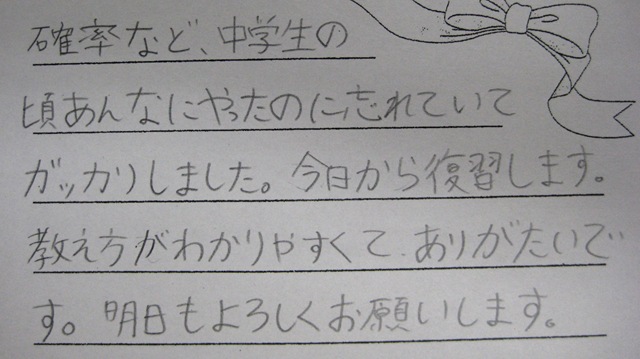 確率など、中学生の
頃あんなにやったのに忘れていて
ガッカリしました。今日から復習します。
教え方がわかりやすくて、ありがたいで
す。明日もよろしくお願いします。